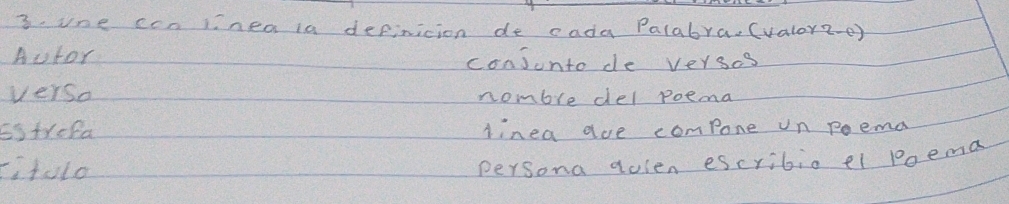 3. une con linea la definicion de cada Palabra. (valor 2.0)
Autor conjunto de versos
verso nombre del poema
Estrofa linea que compone un poema
Titulo persona quien escribio el Poema